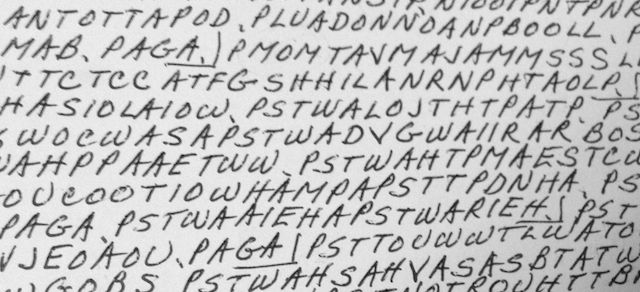 ANTOTTAPOD. PLUADONNDANPBOOLL.
MAB. PAGA.) PMOMTAVMAJAMMSSS
TTCTCC ATFGSHHILANRNPHTAOLP.
HASIOLAIOW. PSTWALOJTHTPATP. PS
WOCWASAPSTWADVGWAIIRAR BOS
AHPPAAETWW. PSTWAHTPMAESTCW
OUCOOTIOWHAMPAPSTTPDNHA. PS
PAGA. PSTWAAIEHAPSTWARIEH.) PST
VJEOAOU. PAGA) PSTTOUWWTLWATO
WGOBS PSTWAHSAHVASASBTATW